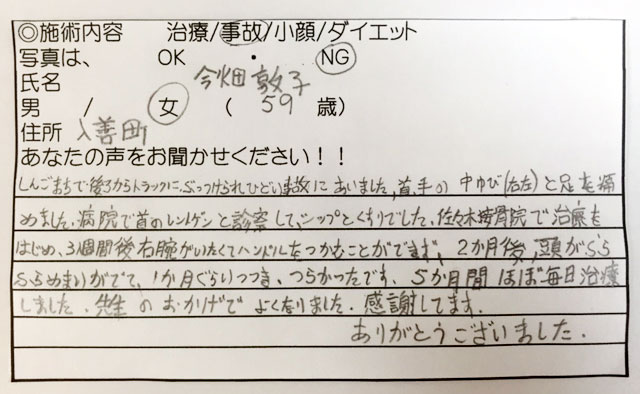 ◎施術内容 治療/事故/小顔/ダイエット
写真は、 OK ・ NG
氏名 今畑敦子
男 / 女 ( 59 歳)
住所 入善町
あなたの声をお聞かせください！！
しんごまちで後ろからトラックにぶつけられひどい事故にあいました。首、手の中ゆび(右左)と足を痛
めました。病院で首のレントゲンと診察して、シップとくすりでした。佐々木接骨院で治療を
はじめ、3週間後右腕がいたくてハンドルをつかむことができず、2か月後、頭がふら
ふらめまいがでて、1か月ぐらいつづき、つらかったです。5か月間ほぼ毎日治療
しました。先生のおかげでよくなりました。感謝してます。
ありがとうございました.